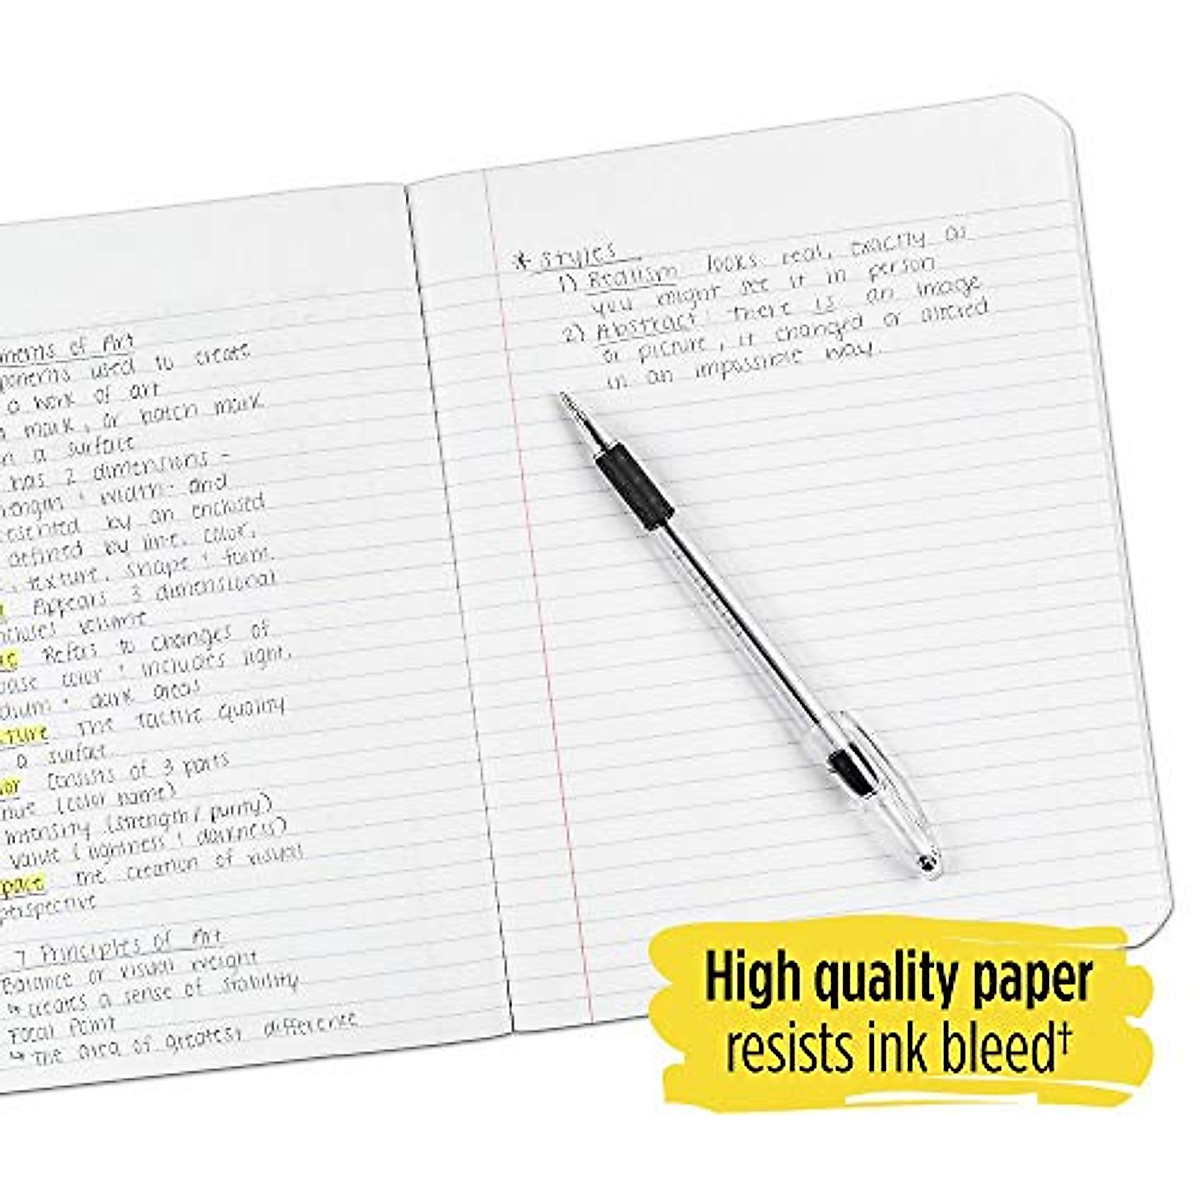 ments of Art
ponents used to create
a work of art
mark, or hatch mark
n a surface
has 2 dimensions -
length & width - and
resented by an enclosed
defined by line, color,
, texture, shape & form.
Appears 3 dimensional
ncluses volume
ue Refers to changes of
base color & includes light,
dium & dark areas
xture The tactile quality
a surface
lor Consists of 3 parts
hue (color name)
intensity (strength / purity)
value (lightness & darkness)
pace the creation of visual
perspective
7 Principles of Art
Balance or visual weight
↳ creates a sense of stability
Focal Point
↳ the area of greatest difference
* Styles
1) Realism looks real, exactly as
you might see it in person
2) Abstract: there is an image
or picture, it changed or altered
in an impossible way.
High quality paper
resists ink bleed†